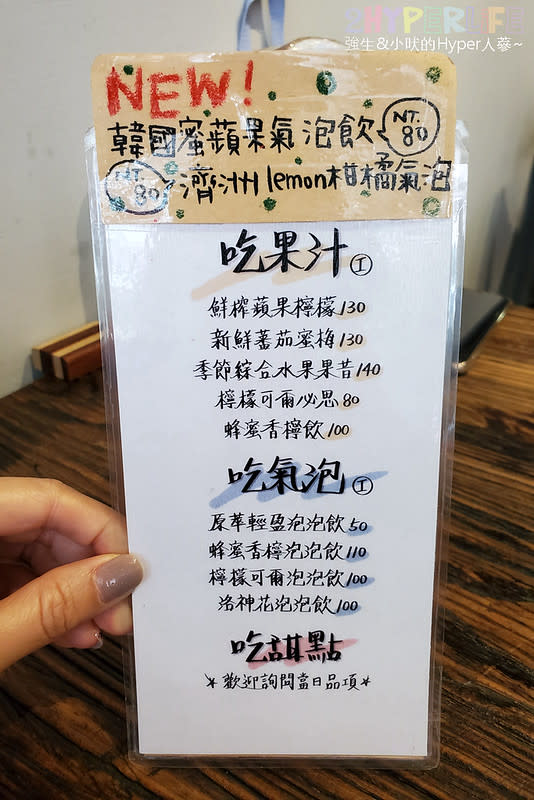 HYPERLIFE
強生&小吠的Hyper人蔘~
NEW!
韓國蜜蘋果氣泡飲 NT. 80
NT. 80 濟洲lemon柑橘氣泡
吃果汁 I
鮮榨蘋果檸檬130
新鮮蕃茄蜜梅130
季節綜合水果果昔140
檸檬可爾必思80
蜂蜜香檸飲100
吃氣泡 I
原萃輕盈泡泡飲50
蜂蜜香檸泡泡飲110
檸檬可爾泡泡飲100
洛神花泡泡飲100
吃甜點
*歡迎詢問當日品項*